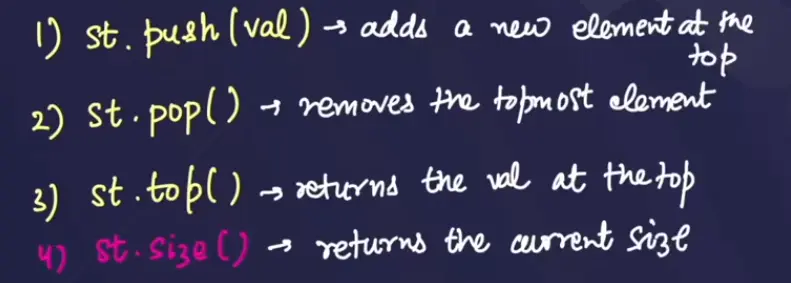 1) st.push(val) → adds a new element at the
top
2) st.pop() → removes the topmost element
3) st.top() → returns the val at the top
4) st.size() → returns the current size